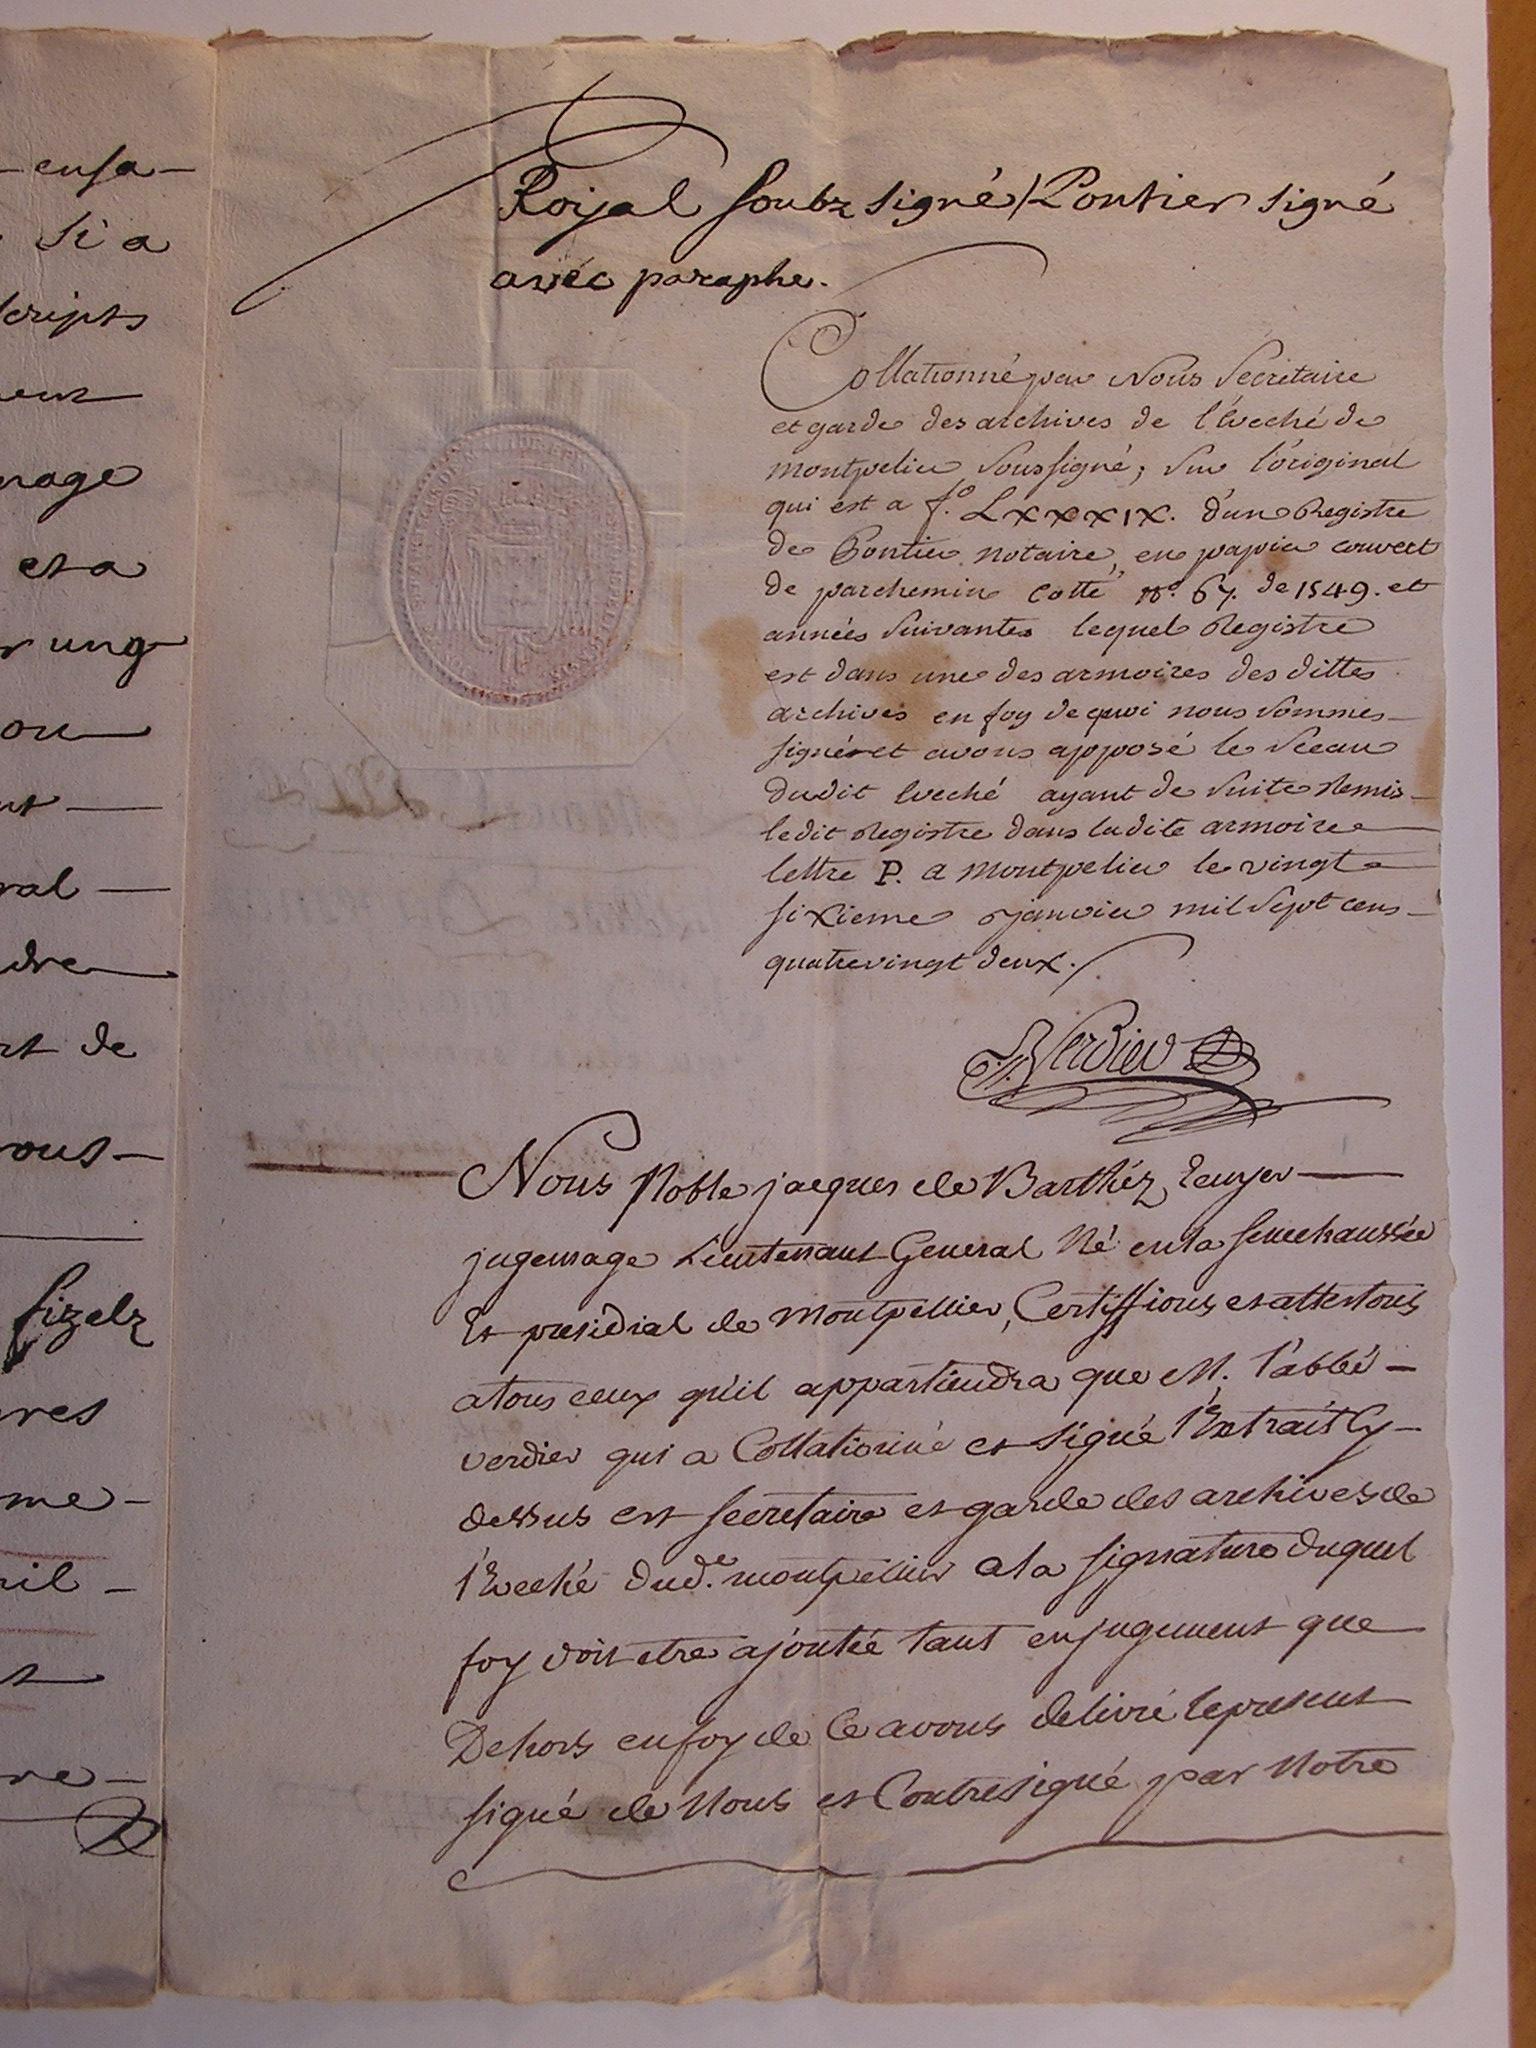 ensa
si a
cripts
ent
nage
et a
r ung
ou
nt
ral
dre
rt de
rous
fizelz
res
me
nil
st
re
Roijal soubz signé / Pontier signé
avec paraphe.
Collationné par Nous Secretaire
et garde des archives de l'évêché de
montpelier soussigné, sur l'original
qui est a f.º LXXXXIX. d'un Registre
de Pontier notaire, en papier couvert
de parchemin cotté nº. 67. de 1549. et
années suivantes lequel Registre
est dans une des armoires des dittes
archives en foy de quoi nous sommes
signés et avons apposé le sceau
dudit Eveché ayant de suite remis
ledit Registre dans ladite armoire
lettre P. a montpelier le vingt
sixieme janvier mil sept cens
quatrevingt deux.
Verdier
Nous Noble jacques de Barthéz Ecuyer
jugemage Lieutenant General Né en la senechaussée
Et presidial de Montpellier, Certiffions et attestons
atous ceux qu'il appartiendra que M. l'abbé
verdier qui a Collationné et signé l'Extrait Cy
dessus est secretaire et garde des archives de
l'Eveché dud.t montpellier a la signature duquel
foy doit etre ajoutée tant en jugement que
Dehors en foy de Ce avons delivré le present
signé de Nous et Contresigné par Notre